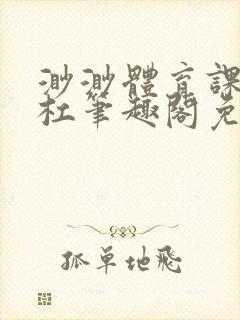 渺渺體育課
杜筆趣閣免
孤單地飛